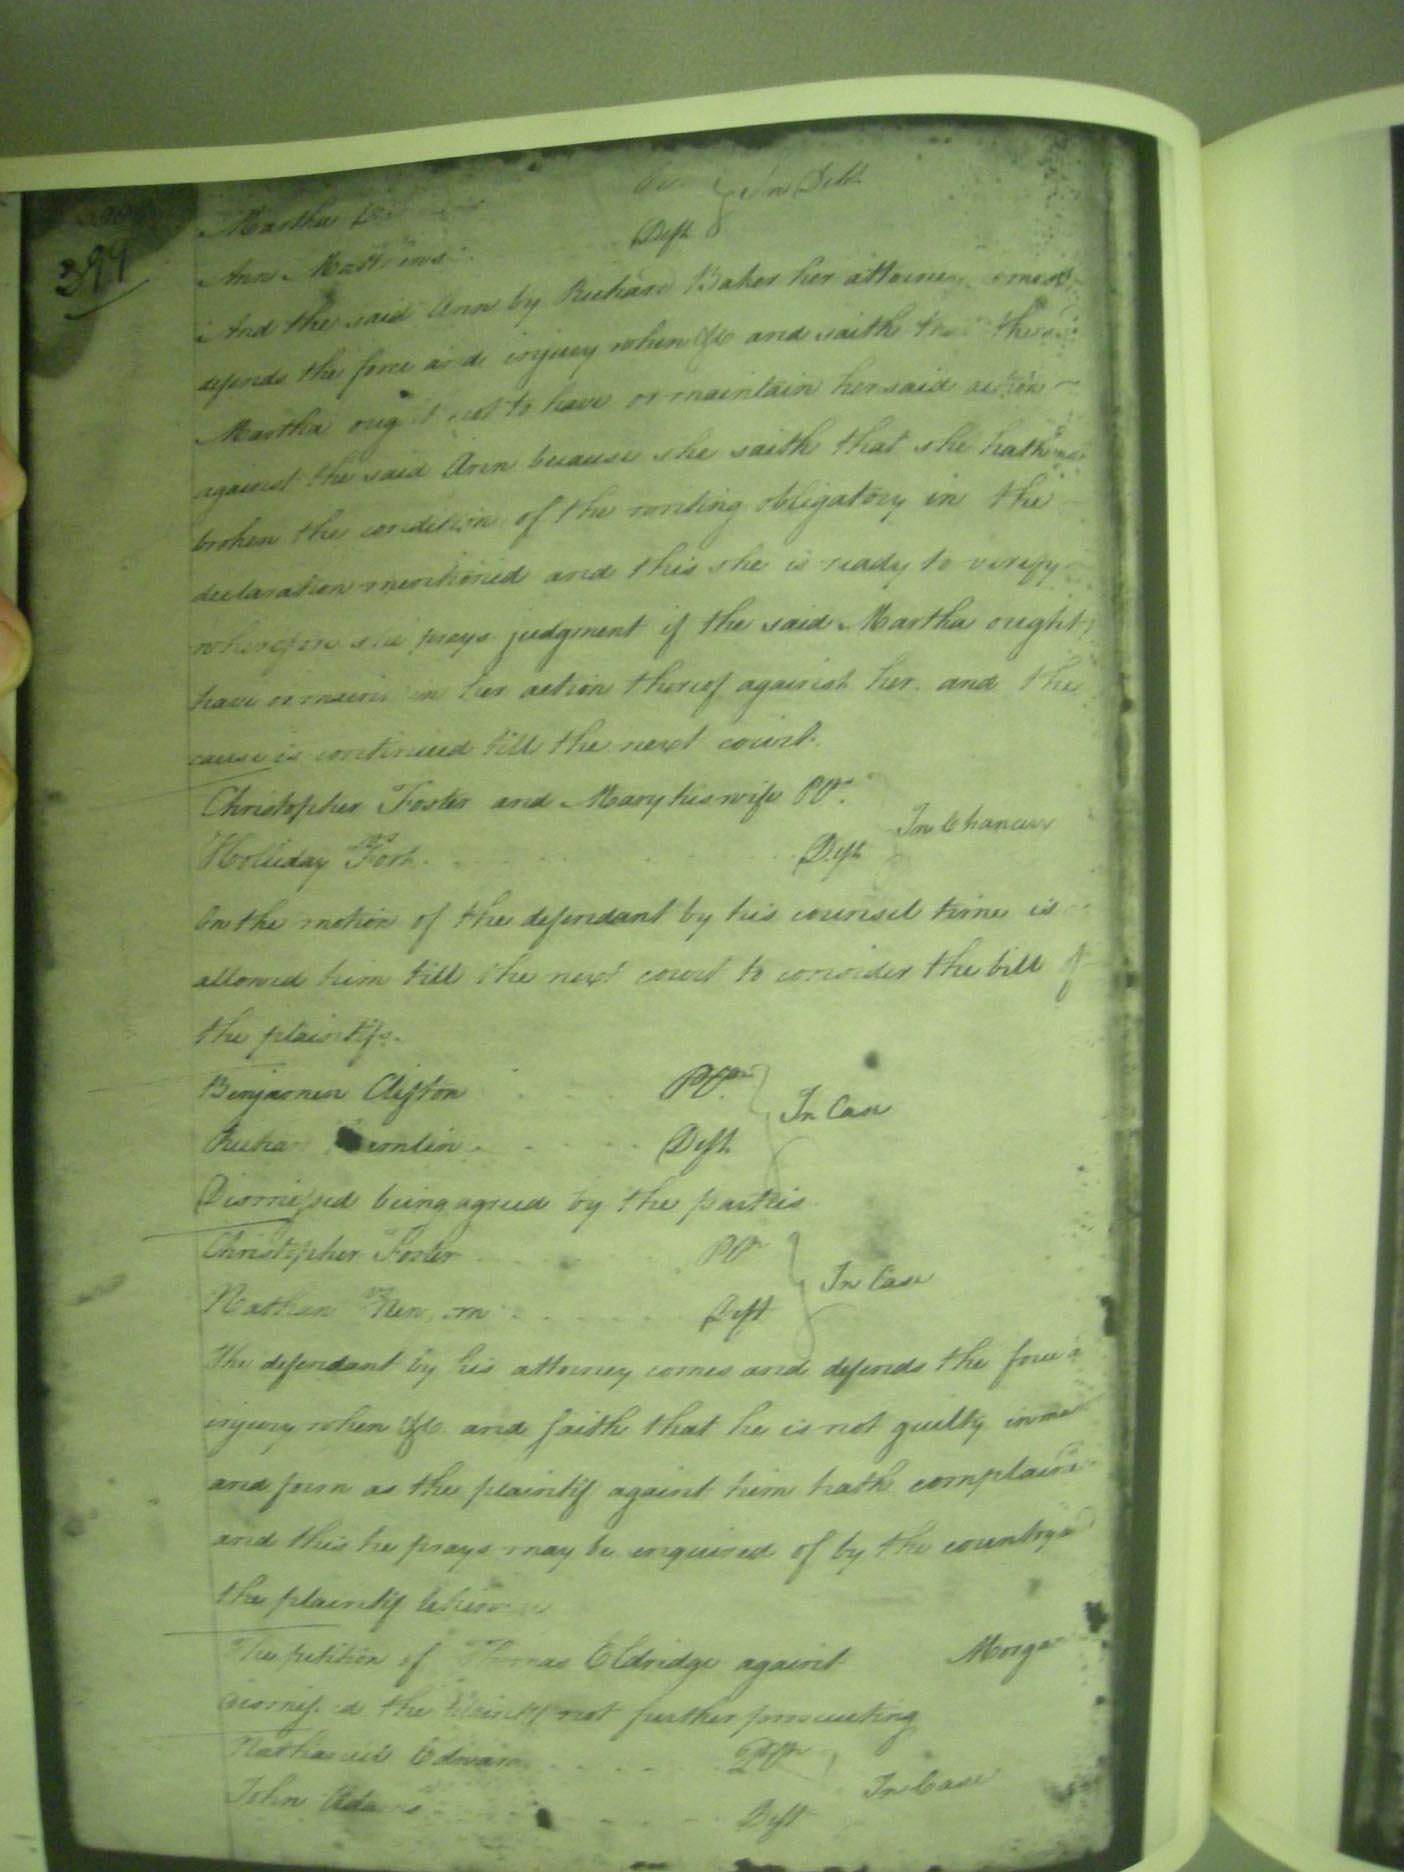 399
In Debt
Martha
Deft
Ann Matthews
And the said Ann by Richard Baker her attorney comes
defends the force and injury when &c and saith that the said
Martha ought not to have or maintain her said action
against the said Ann because she saith that she hath not
broken the condition of the writing obligatory in the
declaration mentioned and this she is ready to verify
wherefore she prays judgment if the said Martha ought
have or maintain her action thereof against her. and the
cause is continued till the next court.
Christopher Foster and Mary his wife Plts.
In Chancery
Holliday Fort Deft
On the motion of the defendant by his counsel time is
allowed him till the next court to consider the bill of
the plaintifs.
Benjamin Clifton Plt
In Case
Deft.
Dismissed being agreed by the parties
Christopher Foster Plt
In Case
Nathan Deft
The defendant by his attorney comes and defends the force &
injury when &c. and saith that he is not guilty in
and form as the plaintif against him hath complained
and this he prays may be enquired of by the country &
the plaintif likewise
The petition of Thomas Eldridge against Morgan
dismissed the plaintif not further prosecuting
Nathaniel Edwards Plt
In Case
John Adams Deft